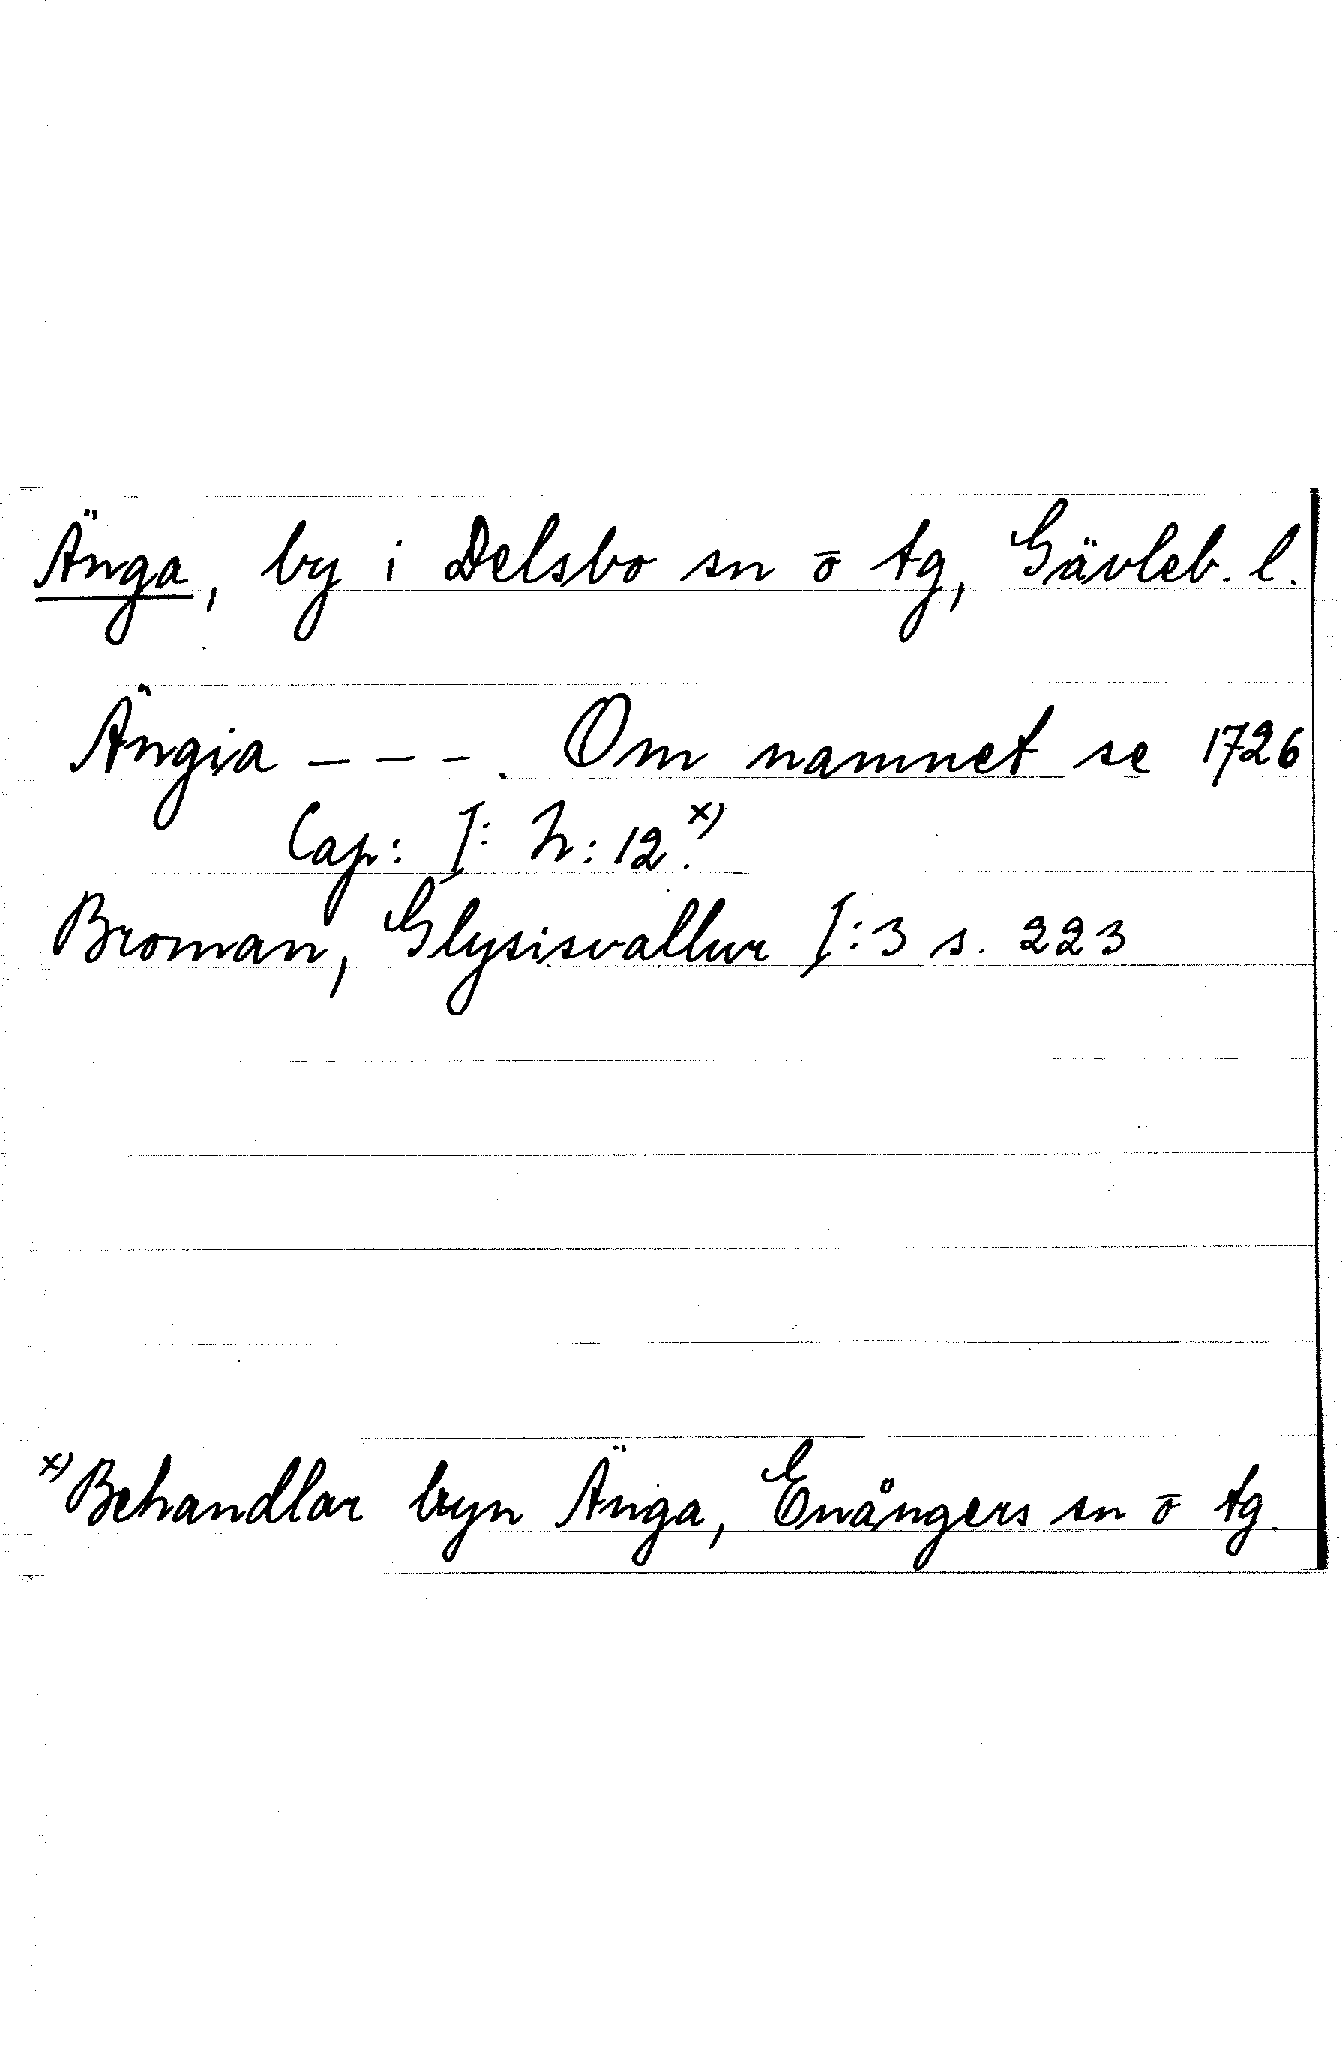 Änga, by i Delsbo sn o tg, Gävleb. l.
Ängia – – –. Om namnet se 1726
Cap: I: h: 12.x)
Broman, Glysisvallur I:3 s. 223
x) Behandlar byn Änga, Enångers sn o tg.